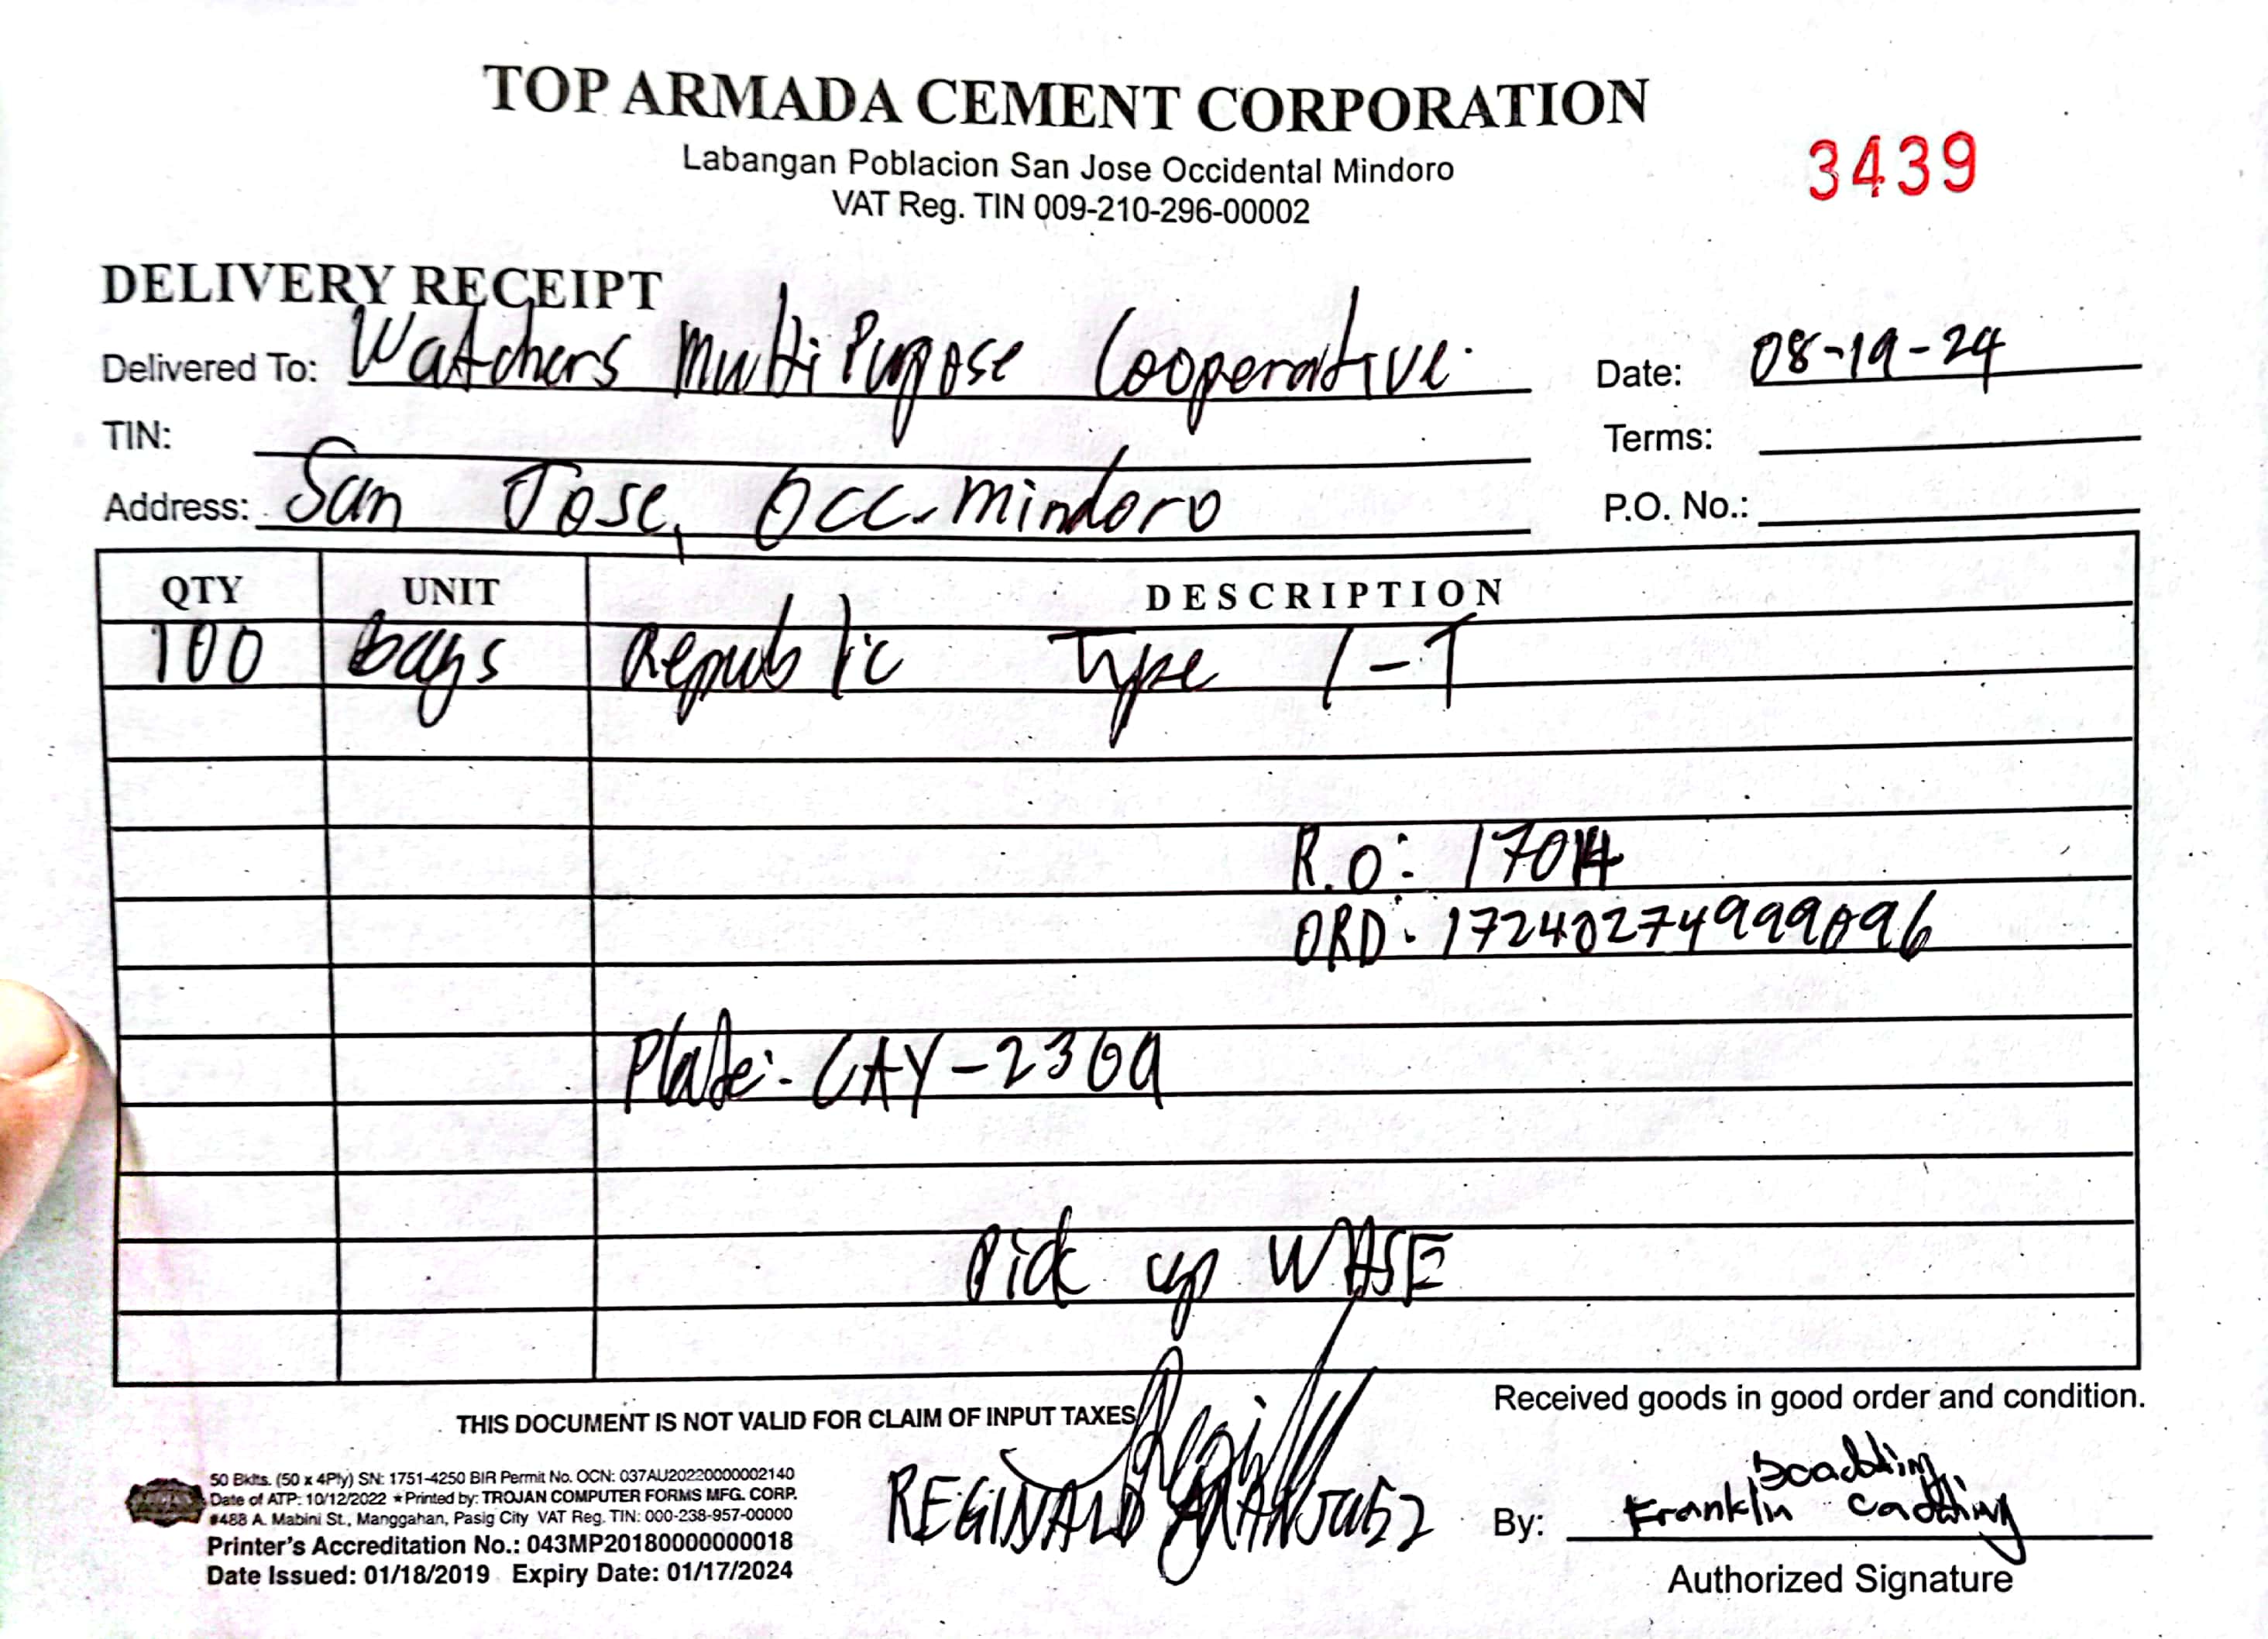 TOP ARMADA CEMENT CORPORATION
Labangan Poblacion San Jose Occidental Mindoro
VAT Reg. TIN 009-210-296-00002
3439
DELIVERY RECEIPT
Delivered To: Watchers Multi Purpose Cooperative
Date: 08-19-24
TIN:
Terms:
Address: San Jose, Occ. Mindoro
P.O. No.:
QTY UNIT DESCRIPTION
100 bags Republic Type 1-T
R.O: 17014
ORD: 17240274999096
Plate: CAY-2309
Pick up WHSE
THIS DOCUMENT IS NOT VALID FOR CLAIM OF INPUT TAXES
Received goods in good order and condition.
50 Bklts. (50 x 4Ply) SN: 1751-4250 BIR Permit No. OCN: 037AU20220000002140
Date of ATP: 10/12/2022 ★ Printed by: TROJAN COMPUTER FORMS MFG. CORP.
#488 A. Mabini St., Manggahan, Pasig City VAT Reg. TIN: 000-238-957-00000
Printer's Accreditation No.: 043MP20180000000018
Date Issued: 01/18/2019 Expiry Date: 01/17/2024
REGINALD
By: Franklin
Authorized Signature